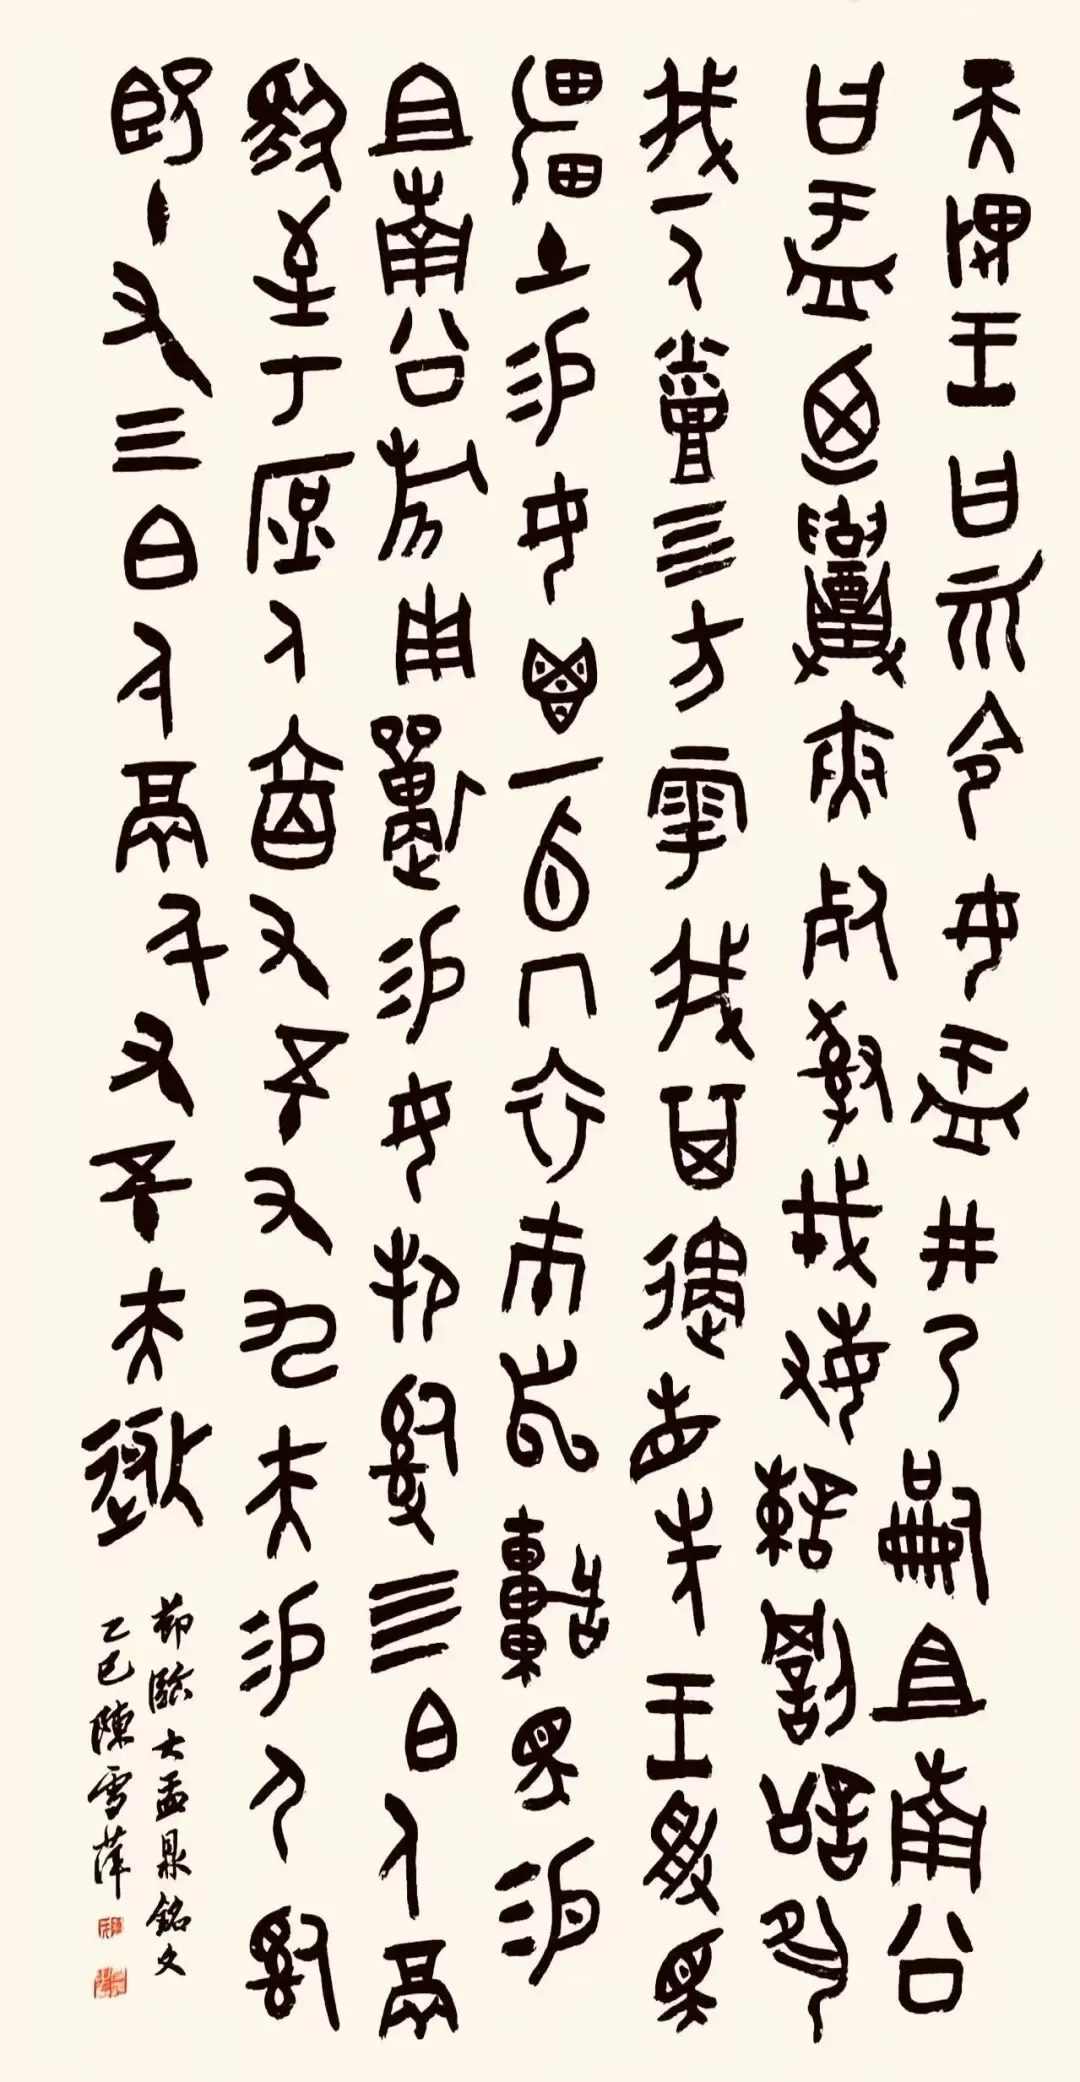 天畏王曰而令女盂井乃嗣且南公
曰盂迺召夾死司戎敏諫罰訟夙
我一人烝四方雩我其遹省先王受民
彊土易女鬯一卣冂衣市舄車馬易
且南公旂用狩易女邦司四白人鬲
馭至于庶人六百又五十又九夫易尸司
十又三白人鬲千又五十夫
節臨大盂鼎銘文
乙巳陳雪萍